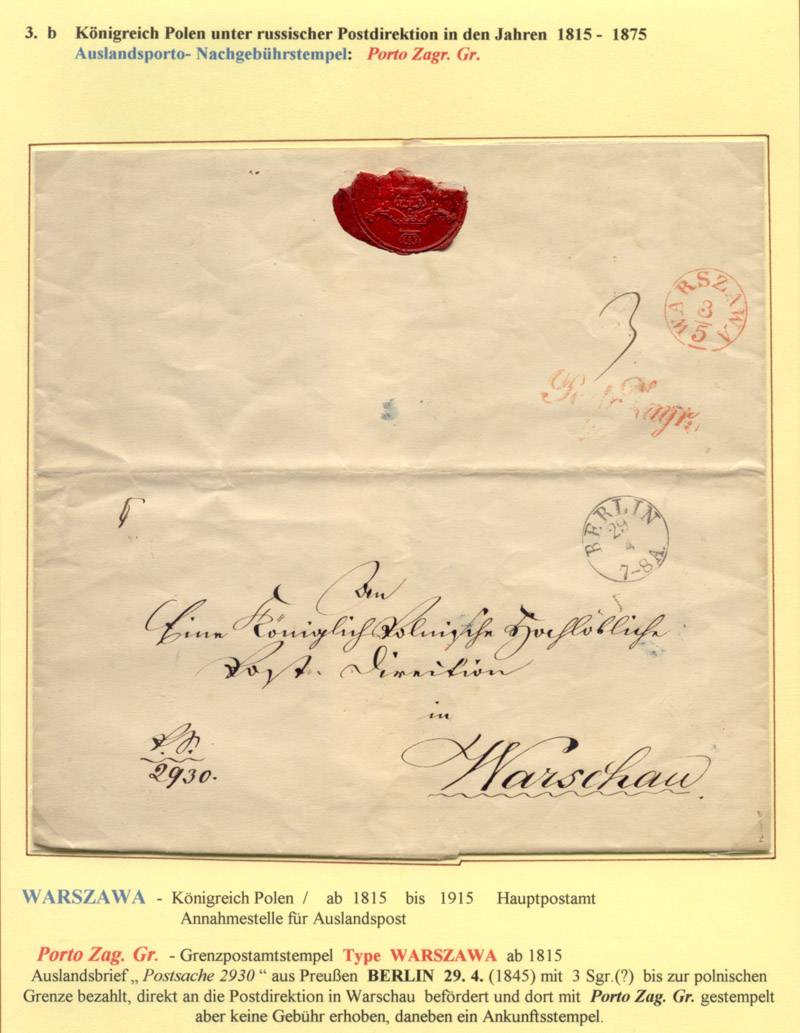 3. b Königreich Polen unter russischer Postdirektion in den Jahren 1815 - 1875
Auslandsporto- Nachgebührstempel: Porto Zagr. Gr.
WARSZAWA
3
5
3
Porto Zagr.
BERLIN
29
4
7-8A.
An
Eine Königlich Polnische Hochlöbliche
Post. Direction
in
P.S.
2930.
Warschau.
WARSZAWA - Königreich Polen / ab 1815 bis 1915 Hauptpostamt
Annahmestelle für Auslandspost
Porto Zag. Gr. - Grenzpostamtstempel Type WARSZAWA ab 1815
Auslandsbrief „ Postsache 2930 “ aus Preußen BERLIN 29. 4. (1845) mit 3 Sgr.(?) bis zur polnischen
Grenze bezahlt, direkt an die Postdirektion in Warschau befördert und dort mit Porto Zag. Gr. gestempelt
aber keine Gebühr erhoben, daneben ein Ankunftsstempel.